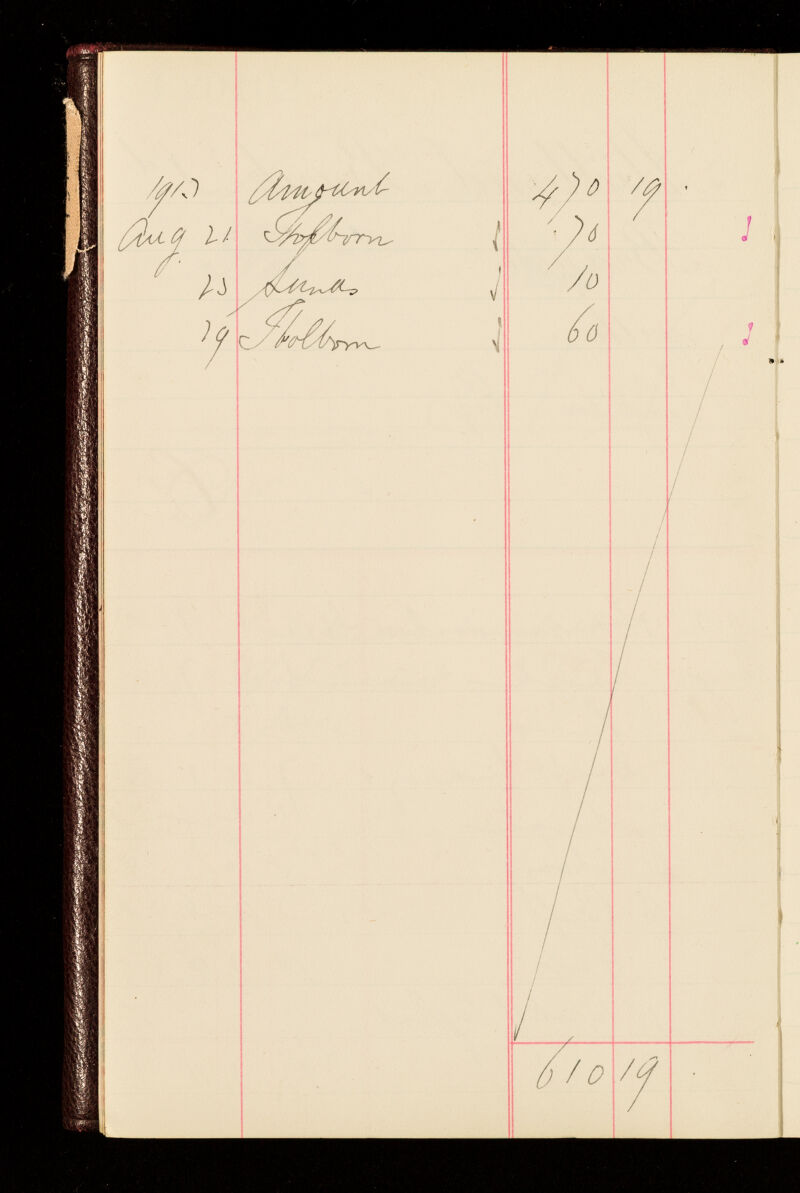 Amount 470 19 .
Aug 21 Holborn 70
23 Sunds 10
29 Holborn 60
610 19 .